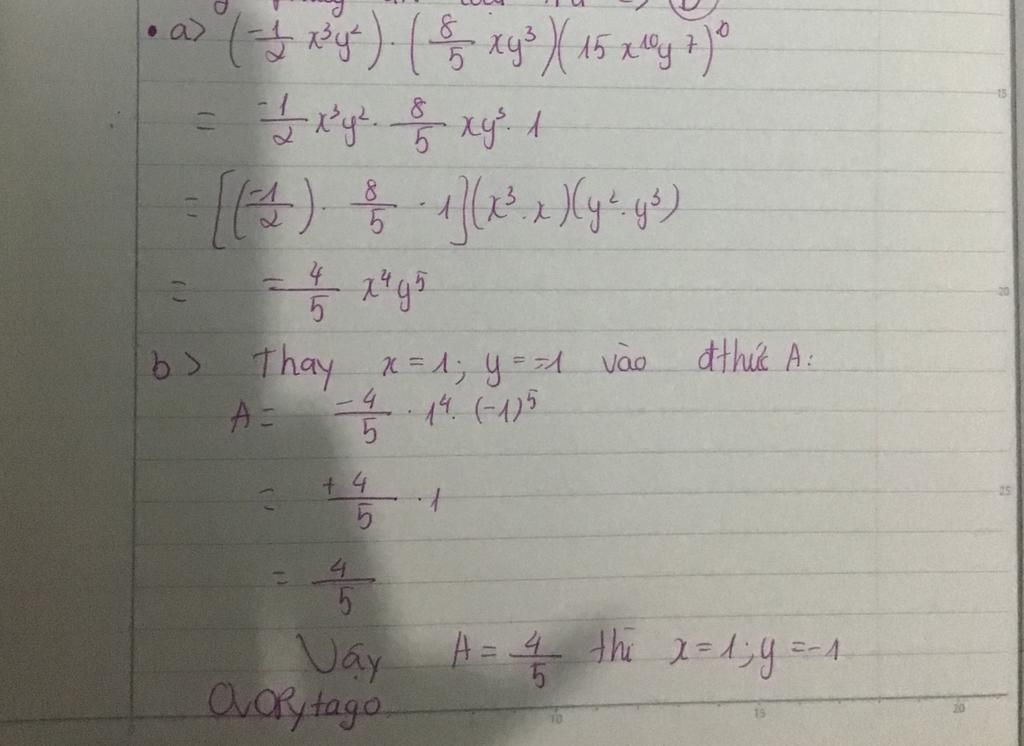 • a> (-1/2 x³y²) . (8/5 xy³)(15 x¹⁰y⁷)⁰
= -1/2 x³y² . 8/5 xy³ . 1
= [(-1/2) . 8/5 . 1](x³ . x)(y² . y³)
= = 4/5 x⁴y⁵
b> Thay x = 1; y = -1 vào đthức A:
A = -4/5 . 1⁴ . (-1)⁵
= +4/5 . 1
= 4/5
Vậy A = 4/5 thì x = 1; y = -1
Pytago